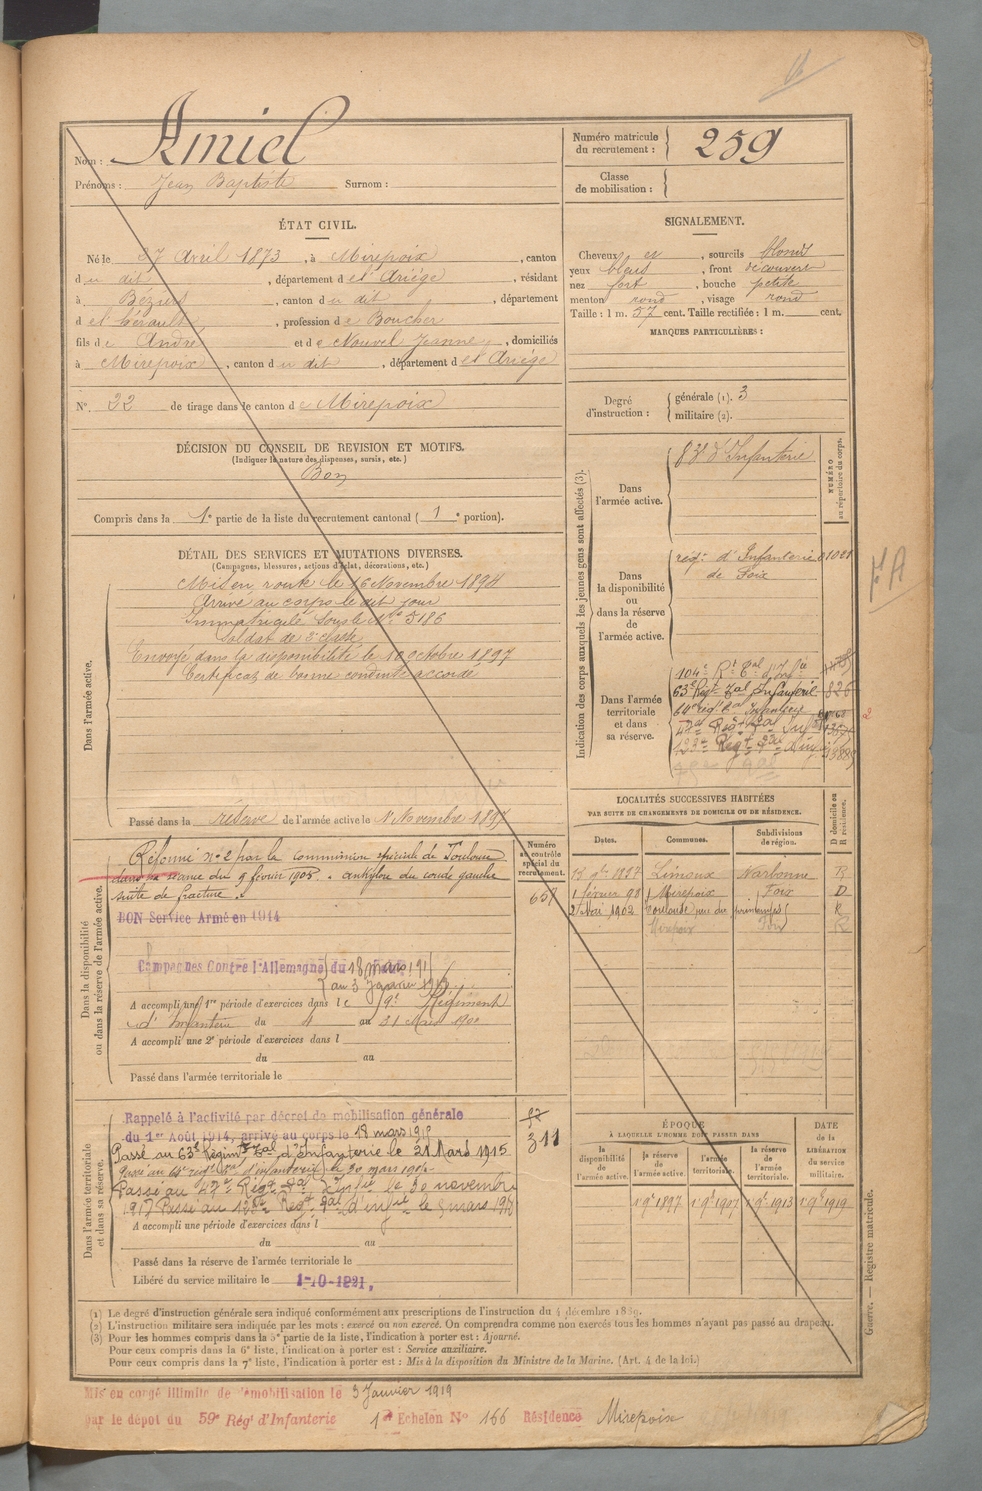 Nom : Amiel
Prénoms : Jean Baptiste Surnom :
Numéro matricule du recrutement : 259
Classe de mobilisation :
ÉTAT CIVIL.
Né le 27 Avril 1873, à Mirepoix, canton
du dit, département de l'Ariège, résidant
à Béziers, canton du dit, département
de l'Hérault, profession de Boucher
fils de André et de Nouvel Jeanne, domiciliés
à Mirepoix, canton du dit, département de l'Ariège
N°. 22 de tirage dans le canton de Mirepoix
SIGNALEMENT.
Cheveux et, sourcils blonds
yeux bleus, front découvert
nez fort, bouche petite
menton rond, visage rond
Taille : 1 m. 57 cent. Taille rectifiée : 1 m. cent.
MARQUES PARTICULIÈRES :
Degré d'instruction : générale (1). 3
militaire (2).
DÉCISION DU CONSEIL DE REVISION ET MOTIFS.
(Indiquer la nature des dispenses, sursis, etc.)
Bon
Compris dans la 1e partie de la liste du recrutement cantonal ( 1 e portion).
DÉTAIL DES SERVICES ET MUTATIONS DIVERSES.
(Campagnes, blessures, actions d'éclat, décorations, etc.)
Dans l'armée active.
Mis en route le 16 Novembre 1894
Arrivé au corps le dit jour
Immatriculé sous le N° 5186
Soldat de 2e classe
Envoyé dans la disponibilité le 10 octobre 1897
Certificat de bonne conduite accordé
Passé dans la réserve de l'armée active le 1 Novembre 1897
Indication des corps auxquels les jeunes gens sont affectés (3).
NUMÉRO au répertoire du corps.
Dans l'armée active.
83e d'Infanterie
Dans la disponibilité ou dans la réserve de l'armée active.
régt d'Infanterie
de Foix
Dans l'armée territoriale et dans sa réserve.
104e Rt
63e Régt Tal Infanterie 826
64e régt Tal Infanterie
LOCALITÉS SUCCESSIVES HABITÉES
PAR SUITE DE CHANGEMENTS DE DOMICILE OU DE RÉSIDENCE.
D domicile ou R résidence.
Dates. Communes. Subdivisions de région.
1897 Limoux Narbonne R
1 février 98 Mirepoix Foix D
2 Mai 1903 Toulouse rue du printemps R
Mirepoix Foix R
Dans la disponibilité ou dans la réserve de l'armée active.
Numéro au contrôle spécial du recrutement.
657
Réformé n° 2 par la commission spéciale de Toulouse
dans sa séance du 9 février 1905. ankylose du coude gauche
suite de fracture.
BON Service Armé en 1914
Campagnes Contre l'Allemagne du 18 mars
au 3 Janvier
A accompli une 1re période d'exercices dans le 9e Régiment
d'Infanterie du 4 au 31 1900
A accompli une 2e période d'exercices dans l
du au
Passé dans l'armée territoriale le
Dans l'armée territoriale et dans sa réserve.
311
Rappelé à l'activité par décret de mobilisation générale
du 1er Août 1914, arrivé au corps le 18 mars 1915
Passé au 63e Régimt Tal d'Infanterie le 21 Mars 1915
Passé au 64e régt d'infanterie le 30 mars
Passé au Régt Tal le 30 novembre
1917 Passé au Régt Tal d'infie le 5 mars
A accompli une période d'exercices dans l
du au
Passé dans la réserve de l'armée territoriale le
Libéré du service militaire le 1-10-1921.
ÉPOQUE
À LAQUELLE L'HOMME DOIT PASSER DANS
DATE de la LIBÉRATION du service militaire.
la disponibilité de l'armée active. la réserve de l'armée active. l'armée territoriale. la réserve de l'armée territoriale.
1897 1907 1913 1919
(1) Le degré d'instruction générale sera indiqué conformément aux prescriptions de l'instruction du 4 décembre 1889.
(2) L'instruction militaire sera indiquée par les mots : exercé ou non exercé. On comprendra comme non exercés tous les hommes n'ayant pas passé au drapeau.
(3) Pour les hommes compris dans la 5e partie de la liste, l'indication à porter est : Ajourné.
Pour ceux compris dans la 6e liste, l'indication à porter est : Service auxiliaire.
Pour ceux compris dans la 7e liste, l'indication à porter est : Mis à la disposition du Ministre de la Marine. (Art. 4 de la loi.)
Guerre. — Registre matricule.
Mis en congé illimité de démobilisation le 3 Janvier 1919
par le dépôt du 59e Régt d'Infanterie 1er Echelon N° 166 Résidence Mirepoix